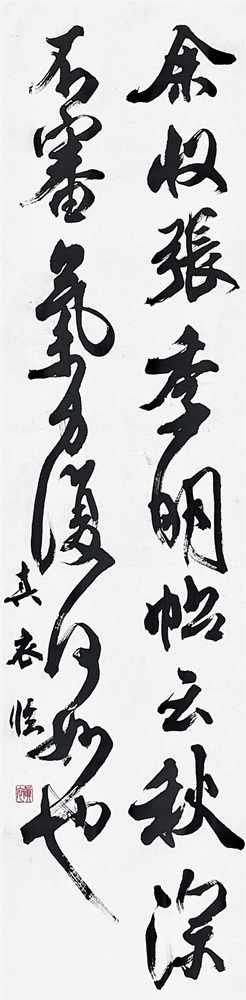 余收張季明帖云秋深
不審氣力復何如也
真衣臨